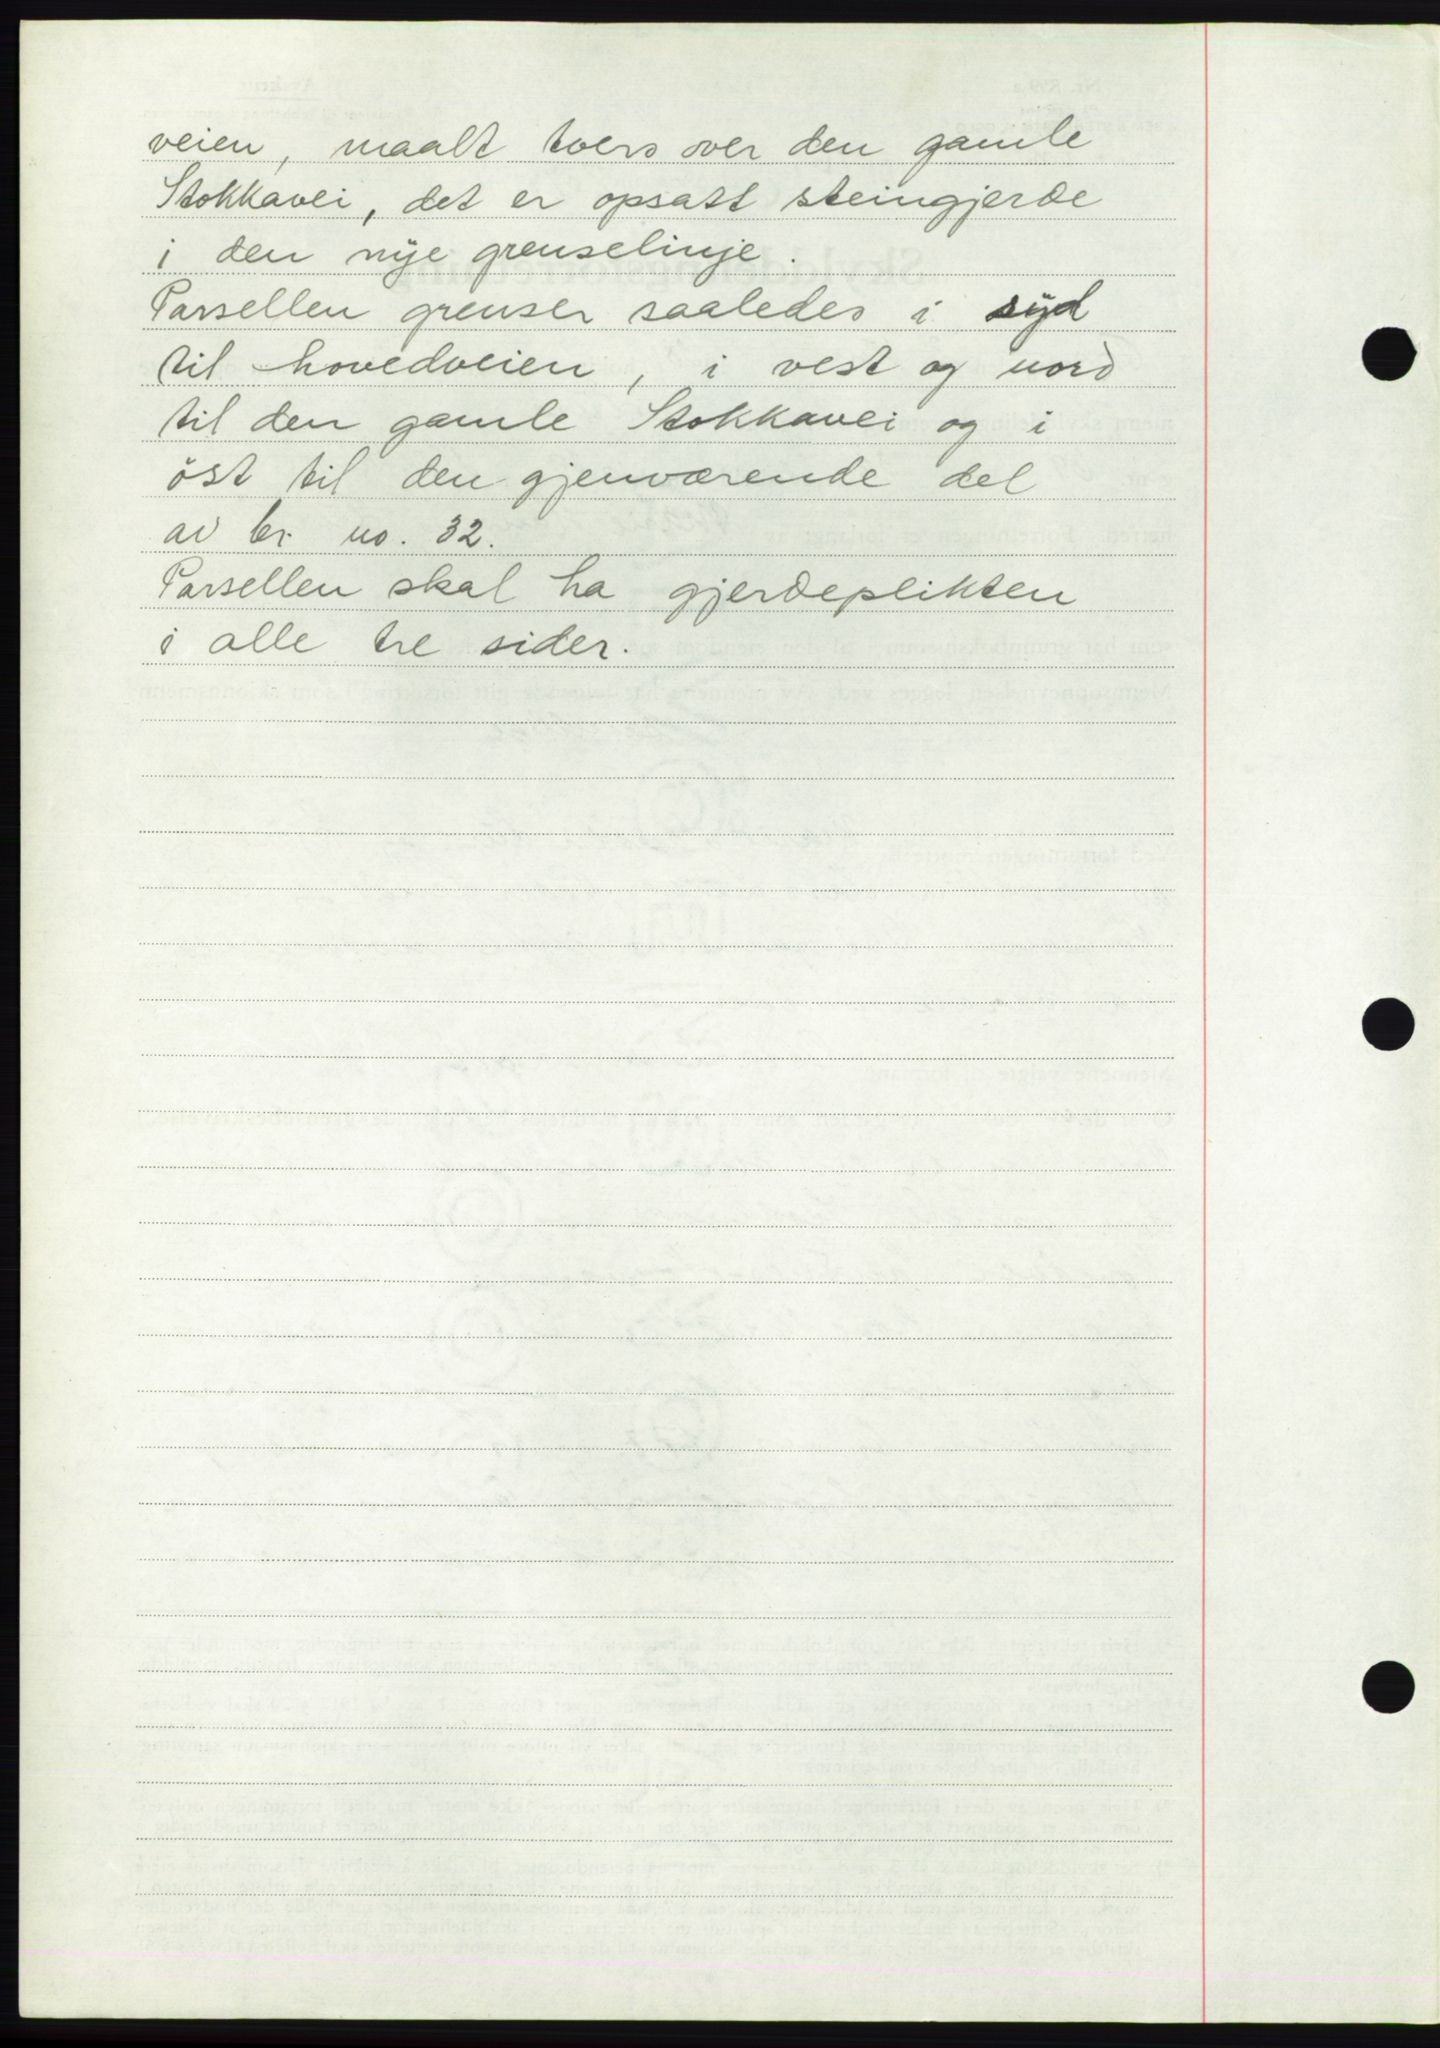 veien, maalt tvers over den gamle
Stokkavei, det er opsatt steingjerde
i den nye grenselinje.
Parsellen grenser saaledes i syd
til hovedveien, i vest og nord
til den gamle Stokkavei og i
öst til den gjenværende del
av br. no. 32.
Parsellen skal ha gjerdeplikten
i alle tre sider.